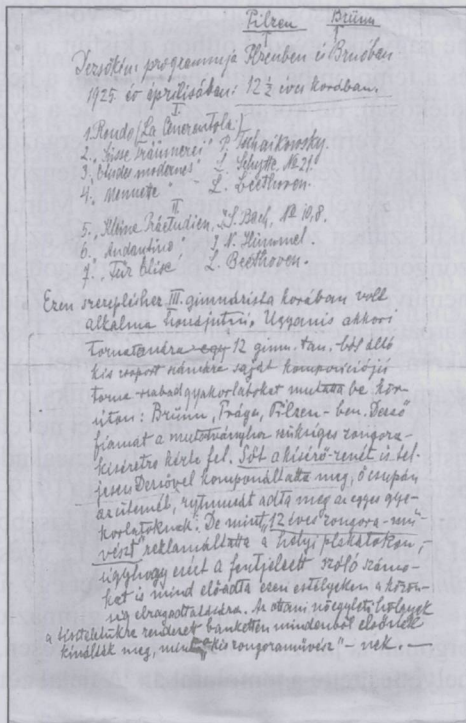 Pilzen Brünn
Dezsőkém programmja Pilzenben és Brnóban
1925 év áprilisában: 12 ½ éves korában.
I.
1. Rondo (La Cenerentola)
2. „Süsse Träumerei" P. Tschaikowsky.
3. „Etudes modernes" L. Schytte. No 21.
4. „Menuete" L. Beethoven.
II.
5. „Kleine Präetudien, „S. Bach, No 10, 8.
6. „Andantino" I. N. Hümmel.
7. „Für Elise" L. Beethoven.
Ezen szereplésher III. gimnázista korában volt
alkalma hozzájutni. Ugyanis akkori
tornatanára egy 12 gimn. tan.-ból álló
kis csoport számára saját kompozíciójú
torna szabadgyakorlatokat mutatta be kör-
úton: Brünn, Prága, Pilzen-ben. Dezső
fiamat a mutatványhoz szükséges zongora-
kiséretre kérte fel. Sőt a kisérő-zenét is tel-
jesen Dezsővel komponáltatta meg, ő csupán
az ütemét, rytmusát adta meg az egyes gya-
korlatoknak. De mint „12 éves zongora-mű-
vészt" reklamáltatta a helyi plakátokon,
úgyhogy ezért a fentjelzett szóló számo-
kat is mind előadta ezen estélyeken a közön-
ség elragadtatására. Az ottani nőegyleti hölgyek
a tiszteletükre rendezett banketten mindenből elsőnek
kínálták meg, mint „kis zongoraművész"-nek. —